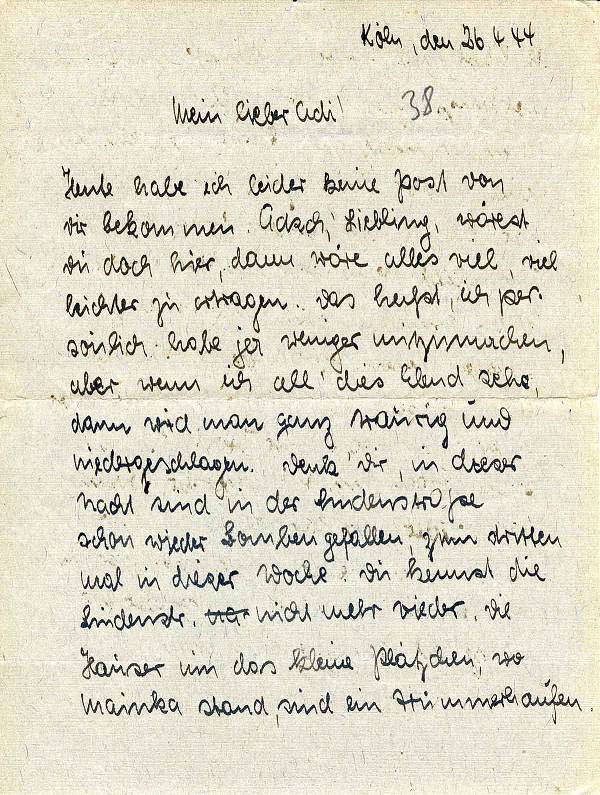 Köln, den 26.4.44
38
Mein lieber Adi!
Heute habe ich leider keine Post von
dir bekommen. Adsch, Liebling, wärest
du doch hier, dann wäre alles viel, viel
leichter zu ertragen. Das heißt, ich per-
sönlich habe ja weniger mitzumachen,
aber wenn ich all' dies Elend sehe,
dann wird man ganz traurig und
niedergeschlagen. Denk' dir, in dieser
Nacht sind in der Lindenstraße
schon wieder Bomben gefallen, zum dritten
mal in dieser Woche. Du kennst die
Lindenstr. nicht mehr wieder. Die
Häuser um das kleine Plätzchen, wo
Mainka stand, sind ein Trümmerhaufen.